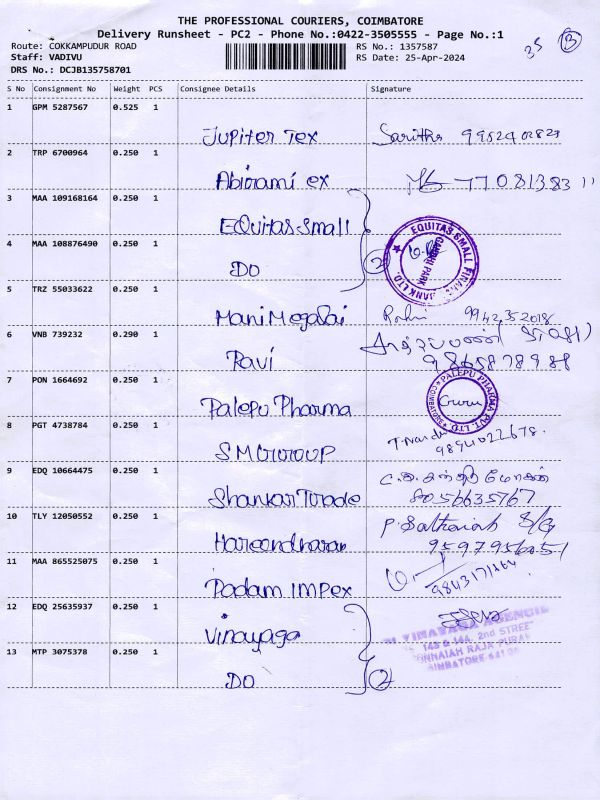 THE PROFESSIONAL COURIERS, COIMBATORE
Delivery Runsheet - PC2 - Phone No.:0422-3505555 - Page No.:1
Route: COKKAMPUDUR ROAD RS No.: 1357587
Staff: VADIVU RS Date: 25-Apr-2024
DRS No.: DCJB135758701
35 B
S No Consignment No Weight PCS Consignee Details Signature
1 GPM 5287567 0.525 1
Jupiter Tex Saritha
2 TRP 6700964 0.250 1
Abirami ex
3 MAA 109168164 0.250 1
EQuitas small
EQUITAS SMALL FINANCE BANK LTD. GANDHI PARK
4 MAA 108876490 0.250 1
DO 2
5 TRZ 55033622 0.250 1
Mani Megalai 9942352018
6 VNB 739232 0.290 1
Ravi 9865878988
7 PON 1664692 0.250 1
Palepu Pharma Guru
PALEPU PHARMA PVT. LTD. COIMBATORE
8 PGT 4738784 0.250 1
SM Group 9894022678.
9 EDQ 10664475 0.250 1
Shankar Trade 8056635767
10 TLY 12050552 0.250 1
Hareendharan
11 MAA 865525075 0.250 1
Padam Impex
12 EDQ 25635937 0.250 1
Vinayaga
VINAYAGA AGENCIE
2nd STREET
RAJA PURAM
13 MTP 3075378 0.250 1
DO 2